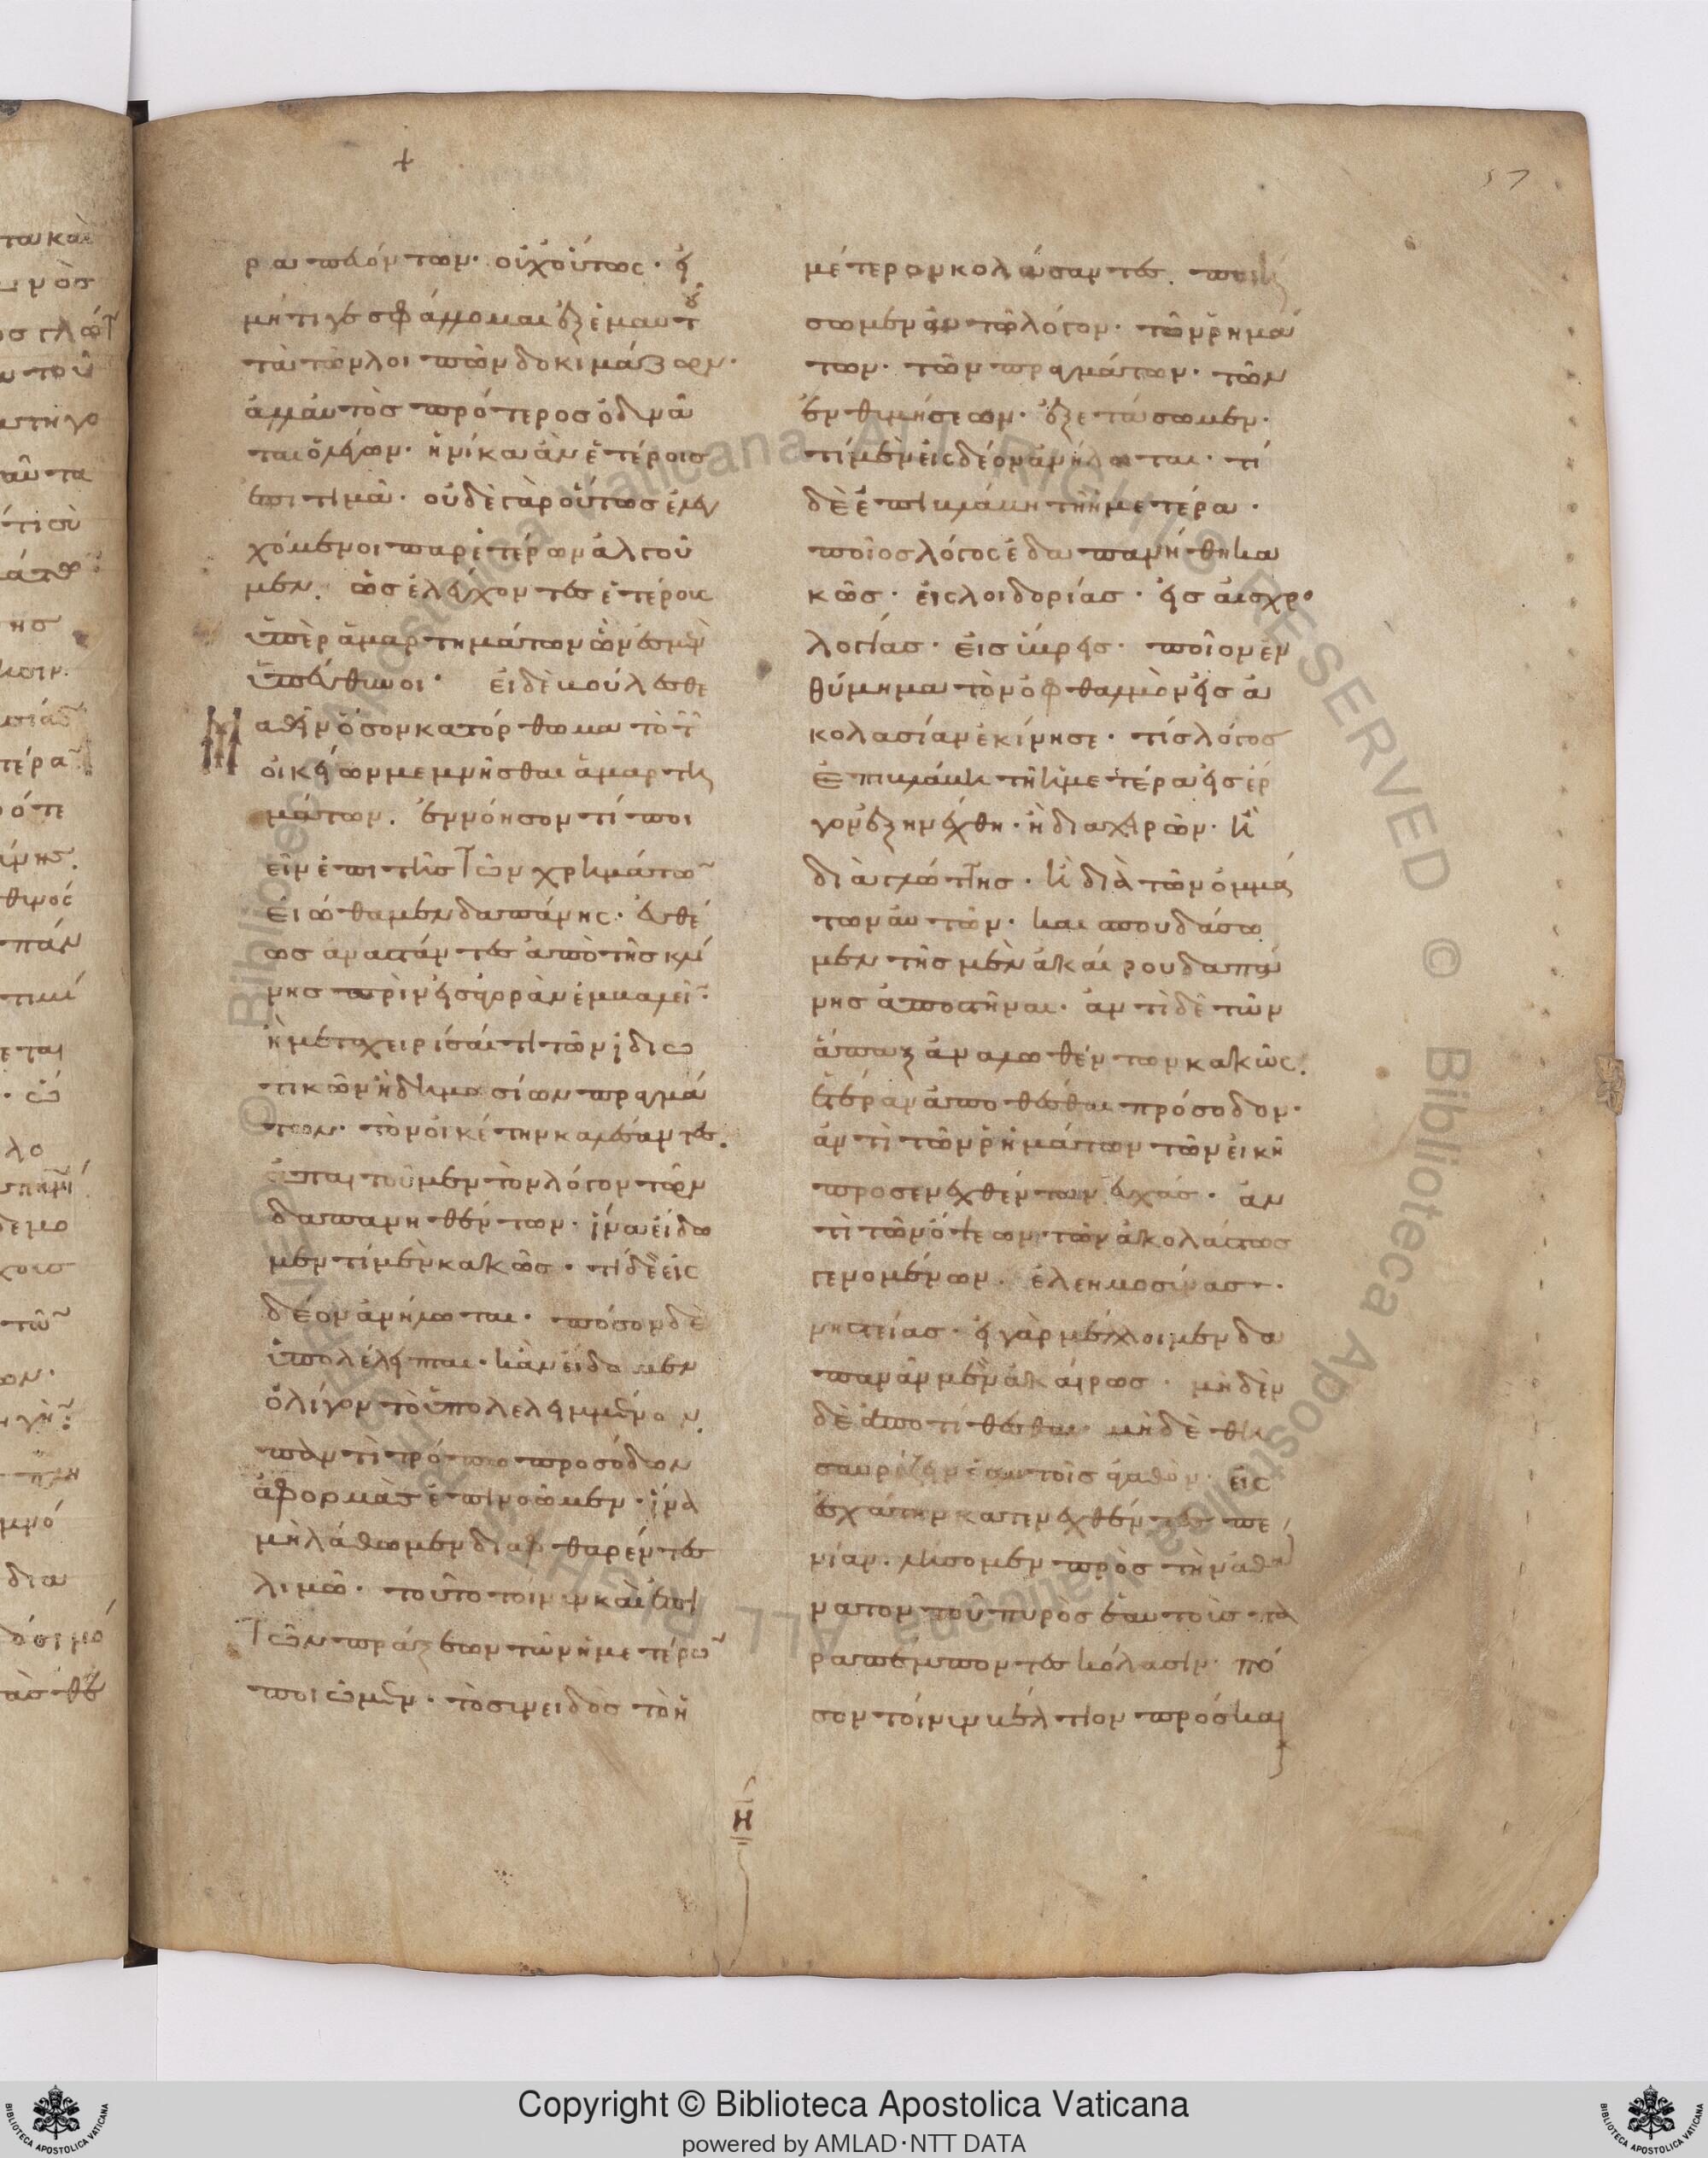 +
57
ρα πλόντων· οὐχ οὕτως· εἰ
μήτι γε σφάλλομαι ἐξ ἐμαυτοῦ
τὰ τῶν λοιπῶν δοκιμάζων·
ἀλλ' αὐτὸς πρότερος ὀδυνᾶ
ται ὁ λέγων· ἡνίκα ἂν ἑτέροις
ἐπιτιμᾶ· οὐδὲ γὰρ οὕτως ἐλεγ
χόμενοι παρ' ἑτέρων ἀλγοῦ
μεν. ὡς ἐλέγχοντες ἑτέρους
ὑπὲρ ἁμαρτημάτων ὧν ἐσμὲν
ὑπεύθυνοι· εἰ δὲ βούλεσθε
μαθεῖν ὅσον κατόρθωμα τὸ τῶν
οἰκείων μεμνῆσθαι ἁμαρτη
μάτων. ἐννόησον τί ποι
εῖν ἐπὶ τῆς τῶν χρημάτω̃
εἰώθαμεν δαπάνης. εὐθέ
ως ἀναστάντες ἀπὸ τῆς κλί
νης πρὶν εἰς ἀγορὰν ἐμβαλεῖ̃·
ἢ μεταχειρίσαί τι τῶν ἰδιω
τικῶν ἢ δημοσίων πραγμά
των· τὸν οἰκέτην καλέσαντες.
ἀπαιτοῦμεν τὸν λόγον τῶν
δαπανηθέντων· ἵνα εἰδῶ
μεν τί μὲν κακῶς· τί δὲ εἰς
δέον ἀνήλωται· πόσον δὲ
ὑπολέλειπται· κἂν εἴδωμεν
ὀλίγον τὸ ὑπολελειμμένον.
παντὶ τρόπω προσόδων
ἀφορμὰς ἐπινοῶμεν· ἵνα
μὴ λάθωμεν διαφθαρέντες
λιμῶ· τοῦτο τοίνυν καὶ ἐπὶ
τῶν πράξεων τῶν ἡμετέρω̃
ποιῶμεν· τὸ συνειδὸς τὸ ἡ
μέτερον καλέσαντες. ποιη
σωμεν αὐτῶ λόγον· τῶν ῥημά
των· τῶν πραγμάτων· τῶν
ἐνθυμήσεων· ἐξετάσωμεν·
τί μὲν εἰς δέον ἀνήλωται· τί
δὲ ἐπὶ βλάβη τῆ ἡμετέρα·
ποῖος λόγος ἐδαπανήθη κα
κῶς· εἰς λοιδορίας· εἰς αἰσχρο
λογίας· εἰς ὕβρεις· ποῖον ἐν
θύμημα τὸν ὀφθαλμὸν εἰς ἀ
κολασίαν ἐκίνησε· τίς λόγος
ἐπὶ βλάβη τῆ ἡμετέρα εἰς ἔρ
γον ἐξηνέχθη· ἢ διὰ χειρῶν· ἢ
διὰ γλώττης· ἢ διὰ τῶν ὀμμά
των αὐτῶν· καὶ σπουδάσω
μεν τῆς μὲν ἀκαίρου δαπά
νης ἀποστῆναι· ἀντὶ δὲ τῶν
ἅπαξ ἀναλωθέντων κακῶς.
ἑτέραν ἀποθέσθαι πρόσοδον·
ἀντὶ τῶν ῥημάτων τῶν εἰκῆ
προσενεχθέντων εὐχάς· ἀν
τὶ τῶν ὄψεων τῶν ἀκολάστως
γενομένων. ἐλεημοσύνας·
νηστείας· εἰ γὰρ μέλλοιμεν δα
πανᾶν μὲν ἀκαίρως· μηδὲν
δὲ ἀποτίθεσθαι· μηδὲ θη
σαυρίζειν ἑαυτοῖς ἀγαθόν· εἰς
ἐσχάτην κατενεχθέντες πε
νίαν. λήσομεν πρὸς τὴν ἀθά
νατον τοῦ πυρὸς ἑαυτοὺς πα
ραπέμποντες κόλασιν· πό
σον τοίνυν βέλτιον πρόσκαι
Η
Copyright © Biblioteca Apostolica Vaticana
powered by AMLAD·NTT DATA